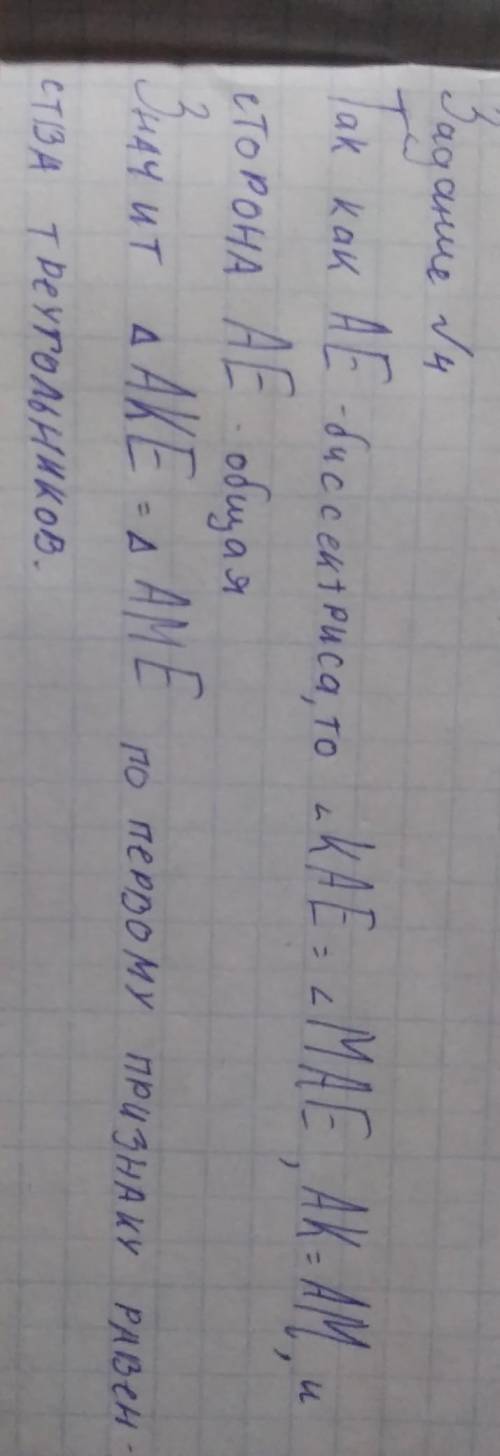 Задание №4
Так как AE - биссектриса, то ∠KAE = ∠MAE, AK = AM, и
сторона AE - общая
Значит ΔAKE = ΔAME по первому признаку равен-
ства треугольников.